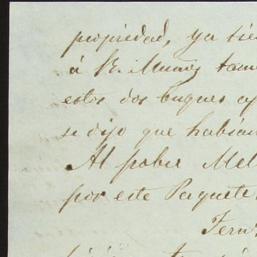 propiedad, ya tie
á Sr. Muñoz tam
estos dos buques
se dijo que habian
Al pobre Mel
por este Paquete
Fern